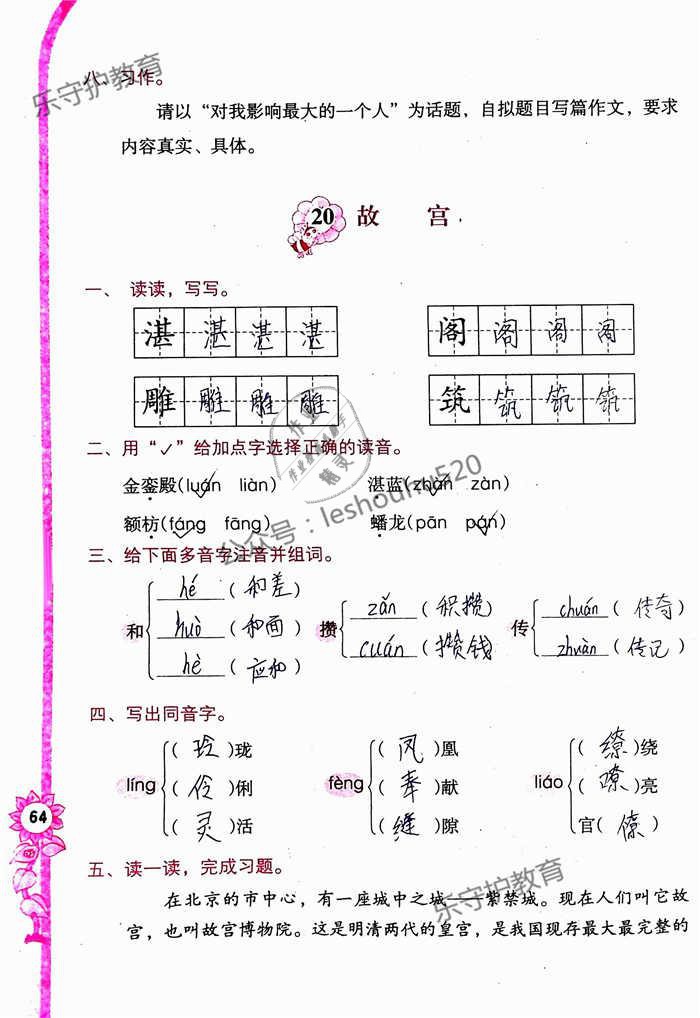 八、习作。
请以“对我影响最大的一个人”为话题，自拟题目写篇作文，要求
内容真实、具体。
20 故 宫
一、 读读，写写。
湛 湛 湛 湛 阁 阁 阁 阁
雕 雕 雕 雕 筑 筑 筑 筑
二、用“✓”给加点字选择正确的读音。
金銮殿(luán liàn) 湛蓝(zhàn zàn)
额枋(fáng fāng) 蟠龙(pān pán)
三、给下面多音字注音并组词。
和 hé (和差) huò (和面) hè (应和)
攒 zǎn (积攒) cuán (攒钱)
传 chuán (传奇) zhuàn (传记)
四、写出同音字。
líng (玲)珑 (伶)俐 (灵)活
fèng (凤)凰 (奉)献 (缝)隙
liáo (缭)绕 (嘹)亮 官(僚)
五、读一读，完成习题。
在北京的市中心，有一座城中之城——紫禁城。现在人们叫它故
宫，也叫故宫博物院。这是明清两代的皇宫，是我国现存最大最完整的
64
乐守护教育
作业精灵
公众号：leshouhu520
乐守护教育